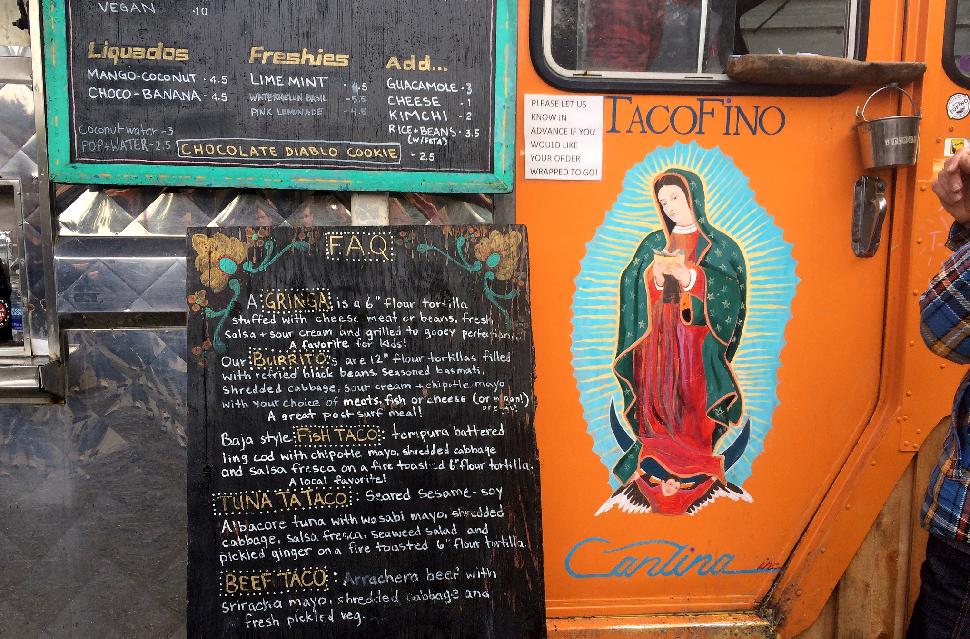 VEGAN - 10
Liquados
MANGO-COCONUT - 4.5
CHOCO-BANANA - 4.5
Coconut water - 3
POP + WATER - 2.5
Freshies
LIME MINT - 4.5
WATERMELON BASIL - 5.5
PINK LEMONADE - 4.5
Add...
GUACAMOLE - 3
CHEESE - 1
KIMCHI - 2
RICE + BEANS - 3.5
(W/FETA)
CHOCOLATE DIABLO COOKIE - 2.5
PLEASE LET US
KNOW IN
ADVANCE IF YOU
WOULD LIKE
YOUR ORDER
WRAPPED TO GO!
TACOFINO
Cantina inc
F.A.Q
A GRINGA is a 6" flour tortilla
stuffed with cheese meat or beans, fresh
salsa + sour cream and grilled to gooey
A favorite for kids!
Our BURRITO's are 12" flour tortillas filled
with refried black beans, seasoned basmati,
shredded cabbage, sour cream + chipotle mayo
with your choice of meats, fish or cheese (or vegan!)
A great post surf meal!
Baja style FISH TACO: tempura battered
ling cod with chipotle mayo, shredded cabbage
and salsa fresca on a fire toasted 6" flour tortilla.
A local favorite!
TUNA TATACO: Seared sesame-soy
Albacore tuna with wasabi mayo, shredded
cabbage, salsa fresca, seaweed salad and
pickled ginger on a fire toasted 6" flour tortilla.
BEEF TACO: Arrachera beef with
sriracha mayo, shredded cabbage and
fresh pickled veg.